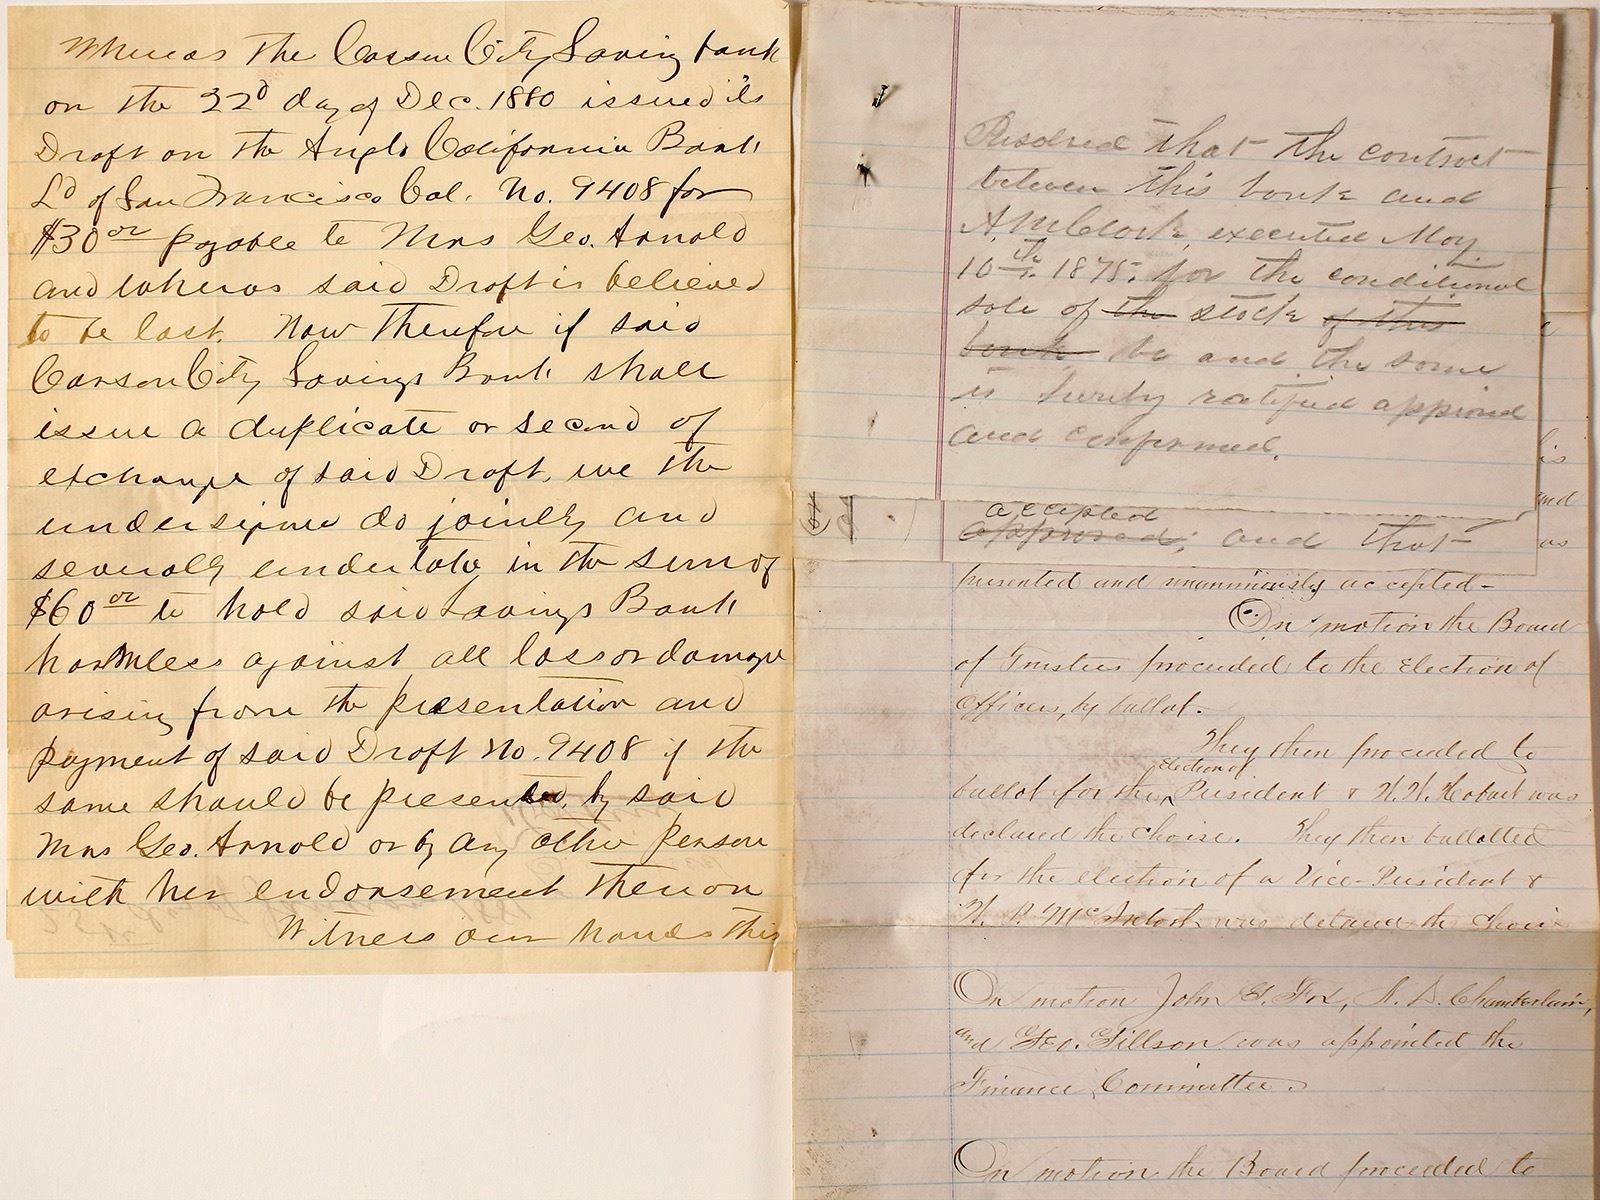 Whereas The Carson City Saving bank
on the 22d day of Dec. 1880 issued its
Draft on the Anglo Californnia Bank
Ld of San Francisco Cal. No. 9408 for
$30 00 payable to Mrs Geo. Arnold
and wheras said Draft is believed
to be lost. Now Therefore if said
Carson City Savings Bank shall
issue a duplicate or second of
exchange of said Draft, we the
undersigned do jointly and
severally undertake in the sum of
$60 00 to hold said Savings Bank
harmless against all loss or damage
arising from the presentation and
payment of said Draft No. 9408 if the
same should be presented by said
Mrs Geo. Arnold or by any other person
with her endorsement thereon
Witness our hands this
Resolved that the contract
between this bank and
A. M. Clark, executed May
10th 1875, for the conditional
sale of the stock of this
bank be and the same
is hereby ratified approved
and confirmed.
accepted
approved; and that
presented and unanimiously accepted-
On motion the Board
of Trustees proceeded to the election of
Officers, by ballot.
They then proceeded to
election of
ballot for the President & W. W. Hobart was
declared the choise. They then ballotted
for the election of a Vice-President &
McIntosh was declared the choise
On motion John G. Fox, Chamberlain,
and Geo. Gillson was appointed the
Finance Committee.
On motion the Board proceeded to